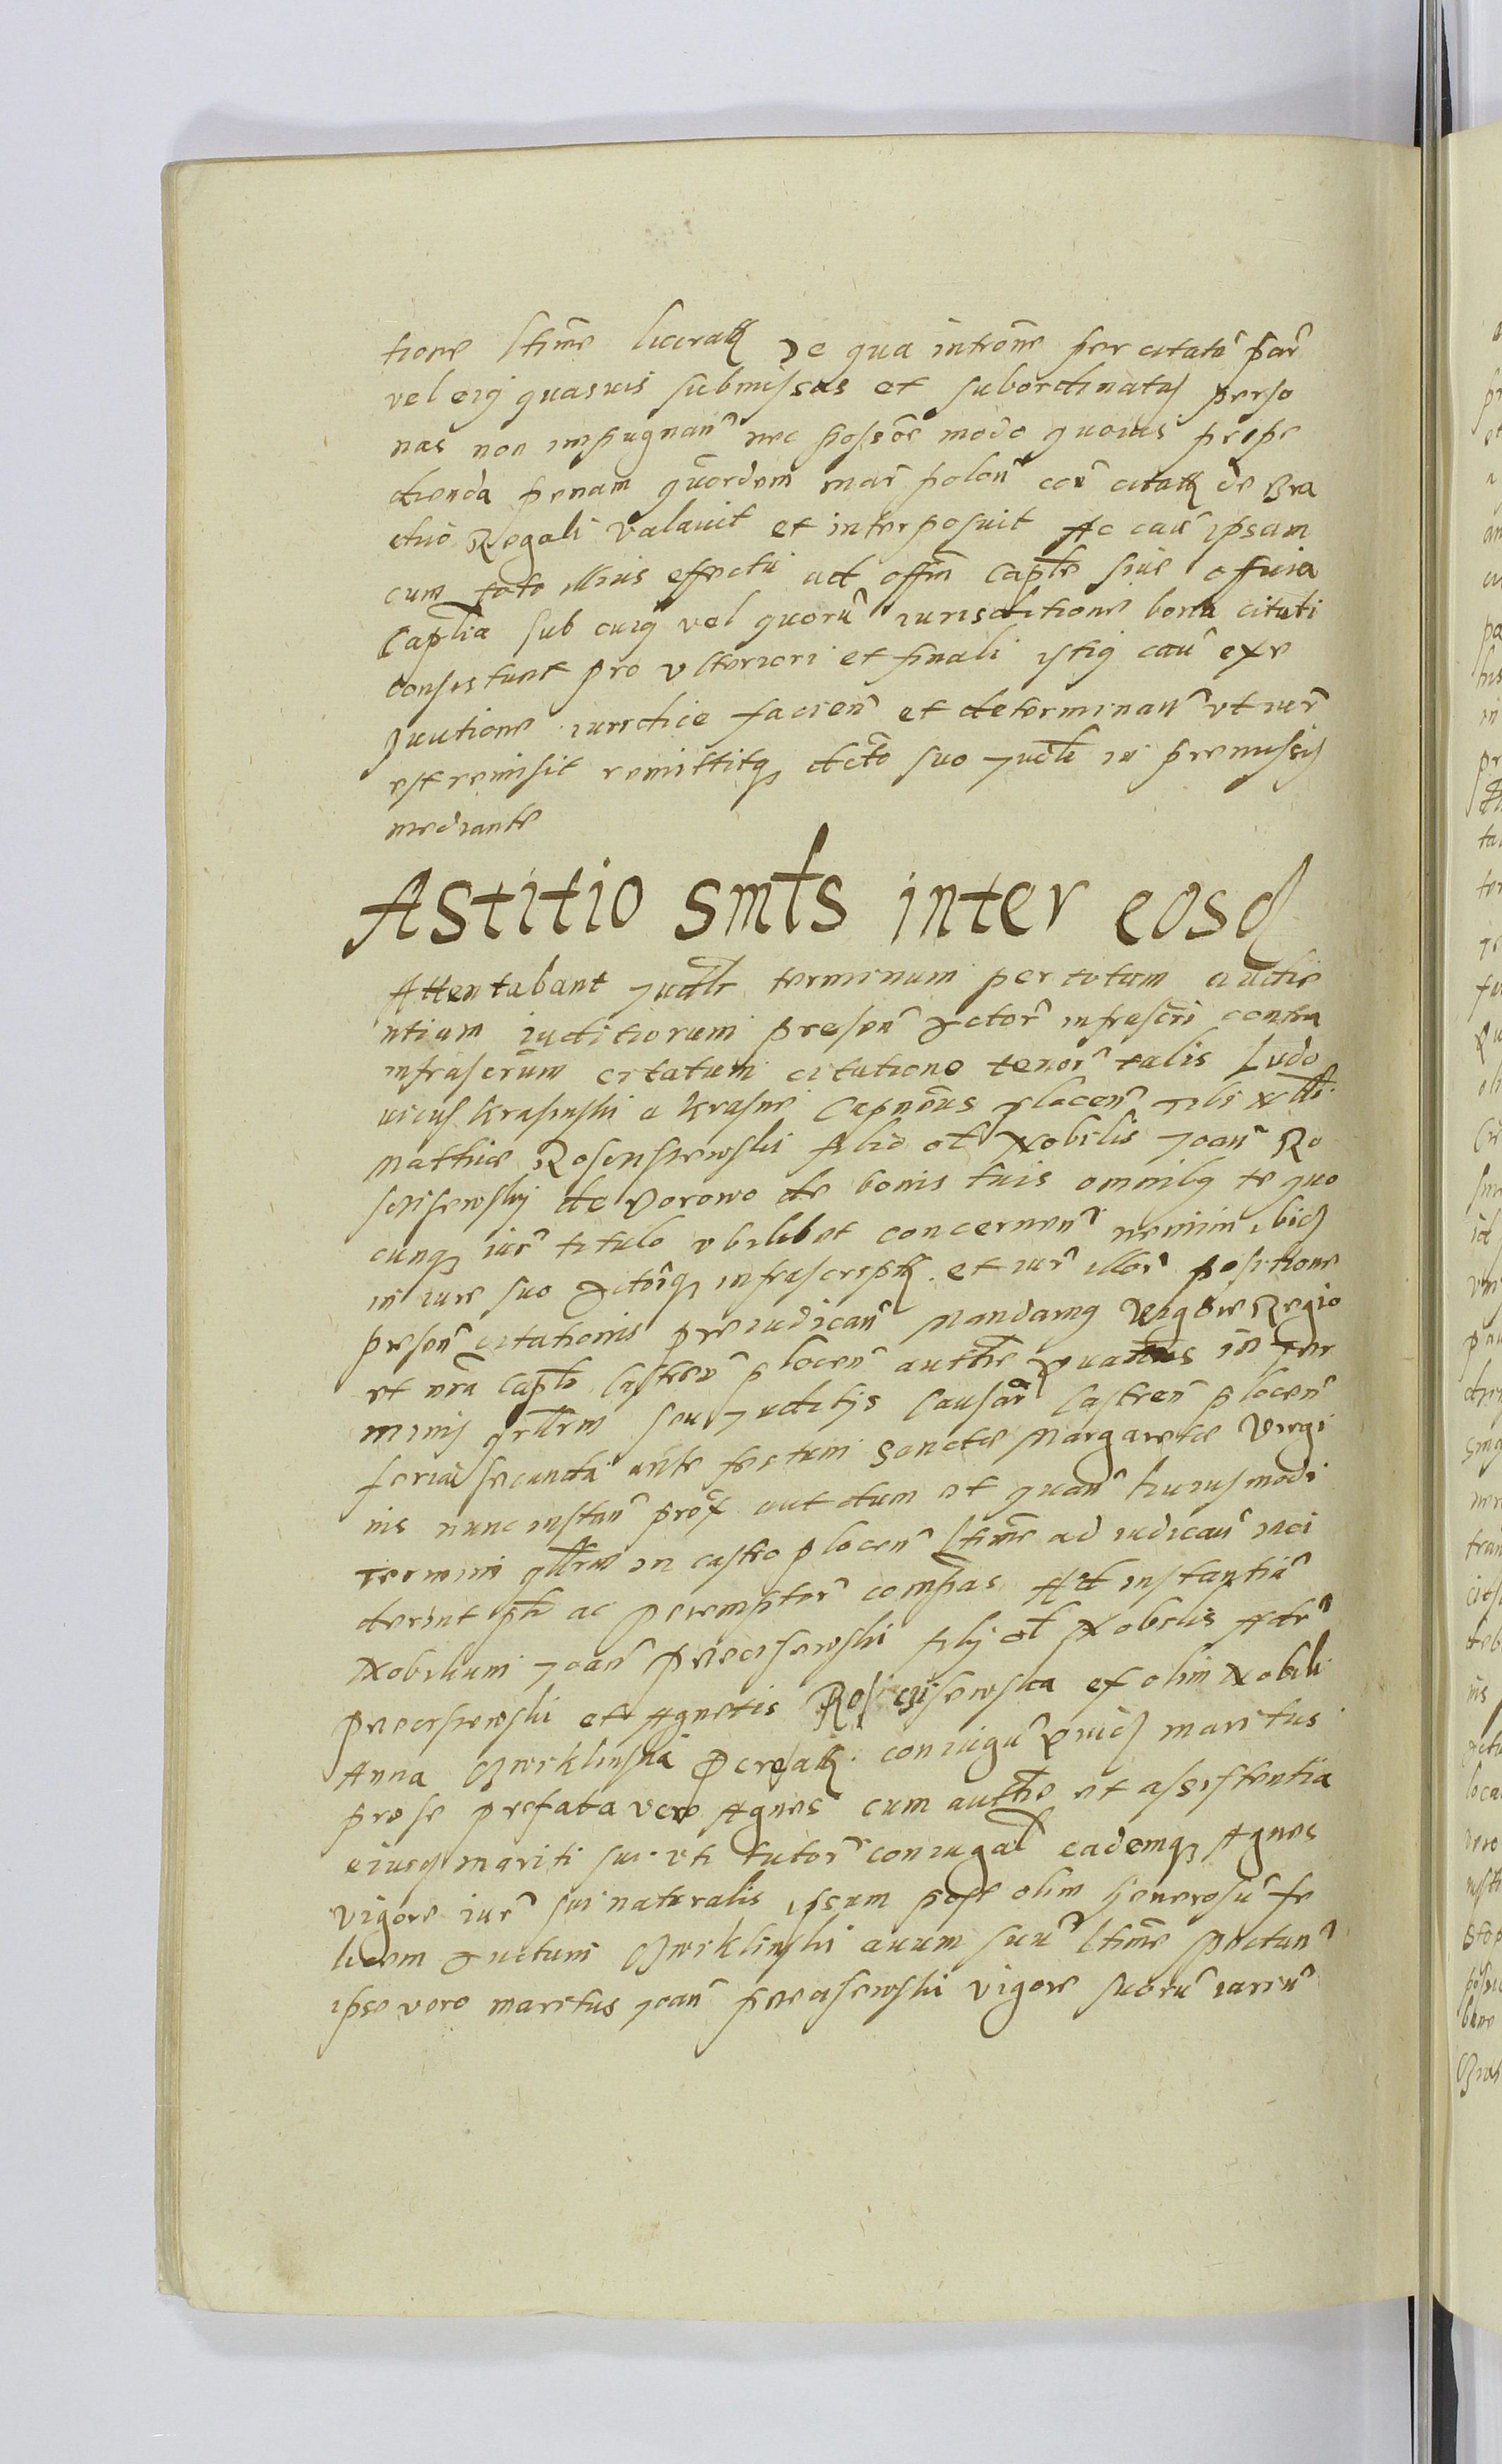 tione ltime lucrat De qua introne per citatu par
vel eius quasvis submissas et subordinatas perso
nas non impugnan nec possore modo quovis prepe
dienda penam quordem mar polon con citat de Bra
chio Regali valavit et interposuit Ac cau ipsam
cum toto illius effectu ad offm Caple sive officia
Caplia sub cuius vel quoru iurisditione bona citati
consistunt pro ulteriori et finali istius cau exe
quutione iuridice facien et determinan ut iur
est remisit remittitq dcto suo Judli in premissis
mediante
Astitio smls inter eosd
Attentabant Judlr terminum per totam audie
ntiam iuditiorum presen Actor infrascri contra
infrascrum citatum citatione tenor talis Ludo
vicus Krasinski a Krasne Capneus plocen Tibi Nlli
Matthie Rosciszewski filio ol Nobilis Joan Ro
sciszewski de Borowo de bonis tuis omnibq te quo
cunq iur titulo ubilibet concernen nemini ibid
in iure suo Actoriq infrascript et iur illor positione
presen citationis preiudican Mandamq Vigore Regio
et nra Capli Castren plocen authte Quatenus in Ter
minis qrllrm seu Juditijs Causar Castren plocen
feria secunda ante festum Sanctae Margarethae Virgi
nis nunc instan prox aut dum et quan huiusmodi
Termini qllrm in castro plocen ltime ad iudican inci
derint plr ac peremptor compas Ad instantia
Nobilium Joan Przeciszewski filij ol Nobilis Adr
Przeciszewski et Agnetis Rosciszewska ex olim Nobili
Anna Cwiklinska pcreat coniugu Quid maritus
pro se prefata vero Agnes cum authte et assistentia
eiusd mariti sui uti tutor coniugal eademq Agnes
vigore iur sui naturalis ipsam post olim Generosu fe
licem Auctum Cwiklinski avum suu ltime spectan
ipse vero maritus Joan Przeciszewski vigore suoru iuriu